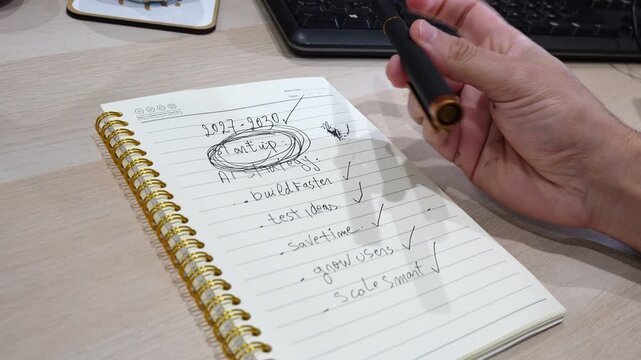 2027-2030 ✓
startup
AI strategy:
. build faster ✓
. test ideas ✓
. save time ✓
. grow users ✓
. scale smart ✓